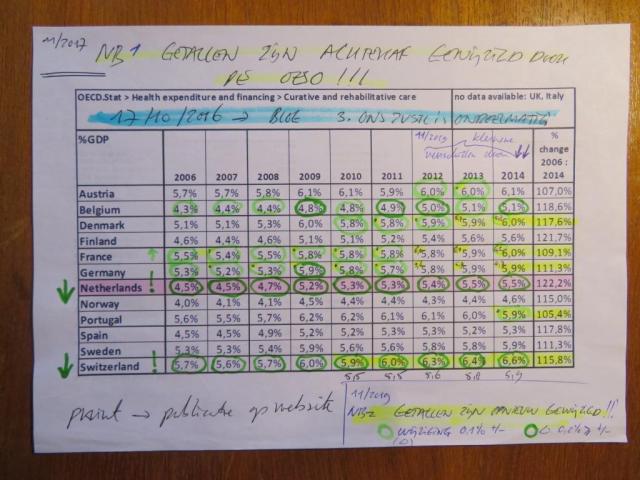 11/2017
NB1 GETALLEN ZIJN ACHTERAF GEWIJZIGD DOOR
DE OESO !!!
OECD.Stat > Health expenditure and financing > Curative and rehabilitative care no data available: UK, Italy
17/10/2016 → 3.
11/2019 kleinere
verschillen door ↓↓
%GDP 2006 2007 2008 2009 2010 2011 2012 2013 2014 % change 2006 : 2014
Austria 5,7% 5,7% 5,8% 6,1% 6,1% 5,9% 6,0% 6,0% 6,1% 107,0%
Belgium 4,3% 4,4% 4,4% 4,8% 4,8% 4,9% 5,0% 5,1% 5,1% 118,6%
Denmark 5,1% 5,1% 5,3% 6,0% 5,8% 5,8% 5,9% 5,9% 6,0% 117,6%
Finland 4,6% 4,6% 4,6% 5,1% 5,1% 5,2% 5,4% 5,6% 5,6% 121,7%
France ↑ 5,5% 5,4% 5,5% 5,8% 5,8% 5,8% 5,8% 5,9% 6,0% 109,1%
Germany ! 5,3% 5,2% 5,3% 5,9% 5,8% 5,7% 5,8% 5,9% 5,9% 111,3%
↓ Netherlands ! 4,5% 4,5% 4,7% 5,2% 5,3% 5,3% 5,4% 5,5% 5,5% 122,2%
Norway 4,0% 4,1% 4,1% 4,5% 4,4% 4,3% 4,4% 4,4% 4,6% 115,0%
Portugal 5,6% 5,5% 5,7% 6,2% 6,2% 6,1% 6,1% 6,0% 5,9% 105,4%
Spain 4,5% 4,5% 4,9% 5,2% 5,2% 5,2% 5,3% 5,2% 5,3% 117,8%
Sweden 5,3% 5,3% 5,4% 5,9% 5,6% 5,6% 5,8% 5,8% 5,9% 111,3%
↓ Switzerland ! 5,7% 5,6% 5,7% 6,0% 5,9% 6,0% 6,3% 6,4% 6,6% 115,8%
5,5 5,5 5,6 5,8 5,9
print → publicatie op website
11/2019
NB2 GETALLEN ZIJN OPNIEUW GEWIJZIGD!!
WIJZIGING 0.1% +/-